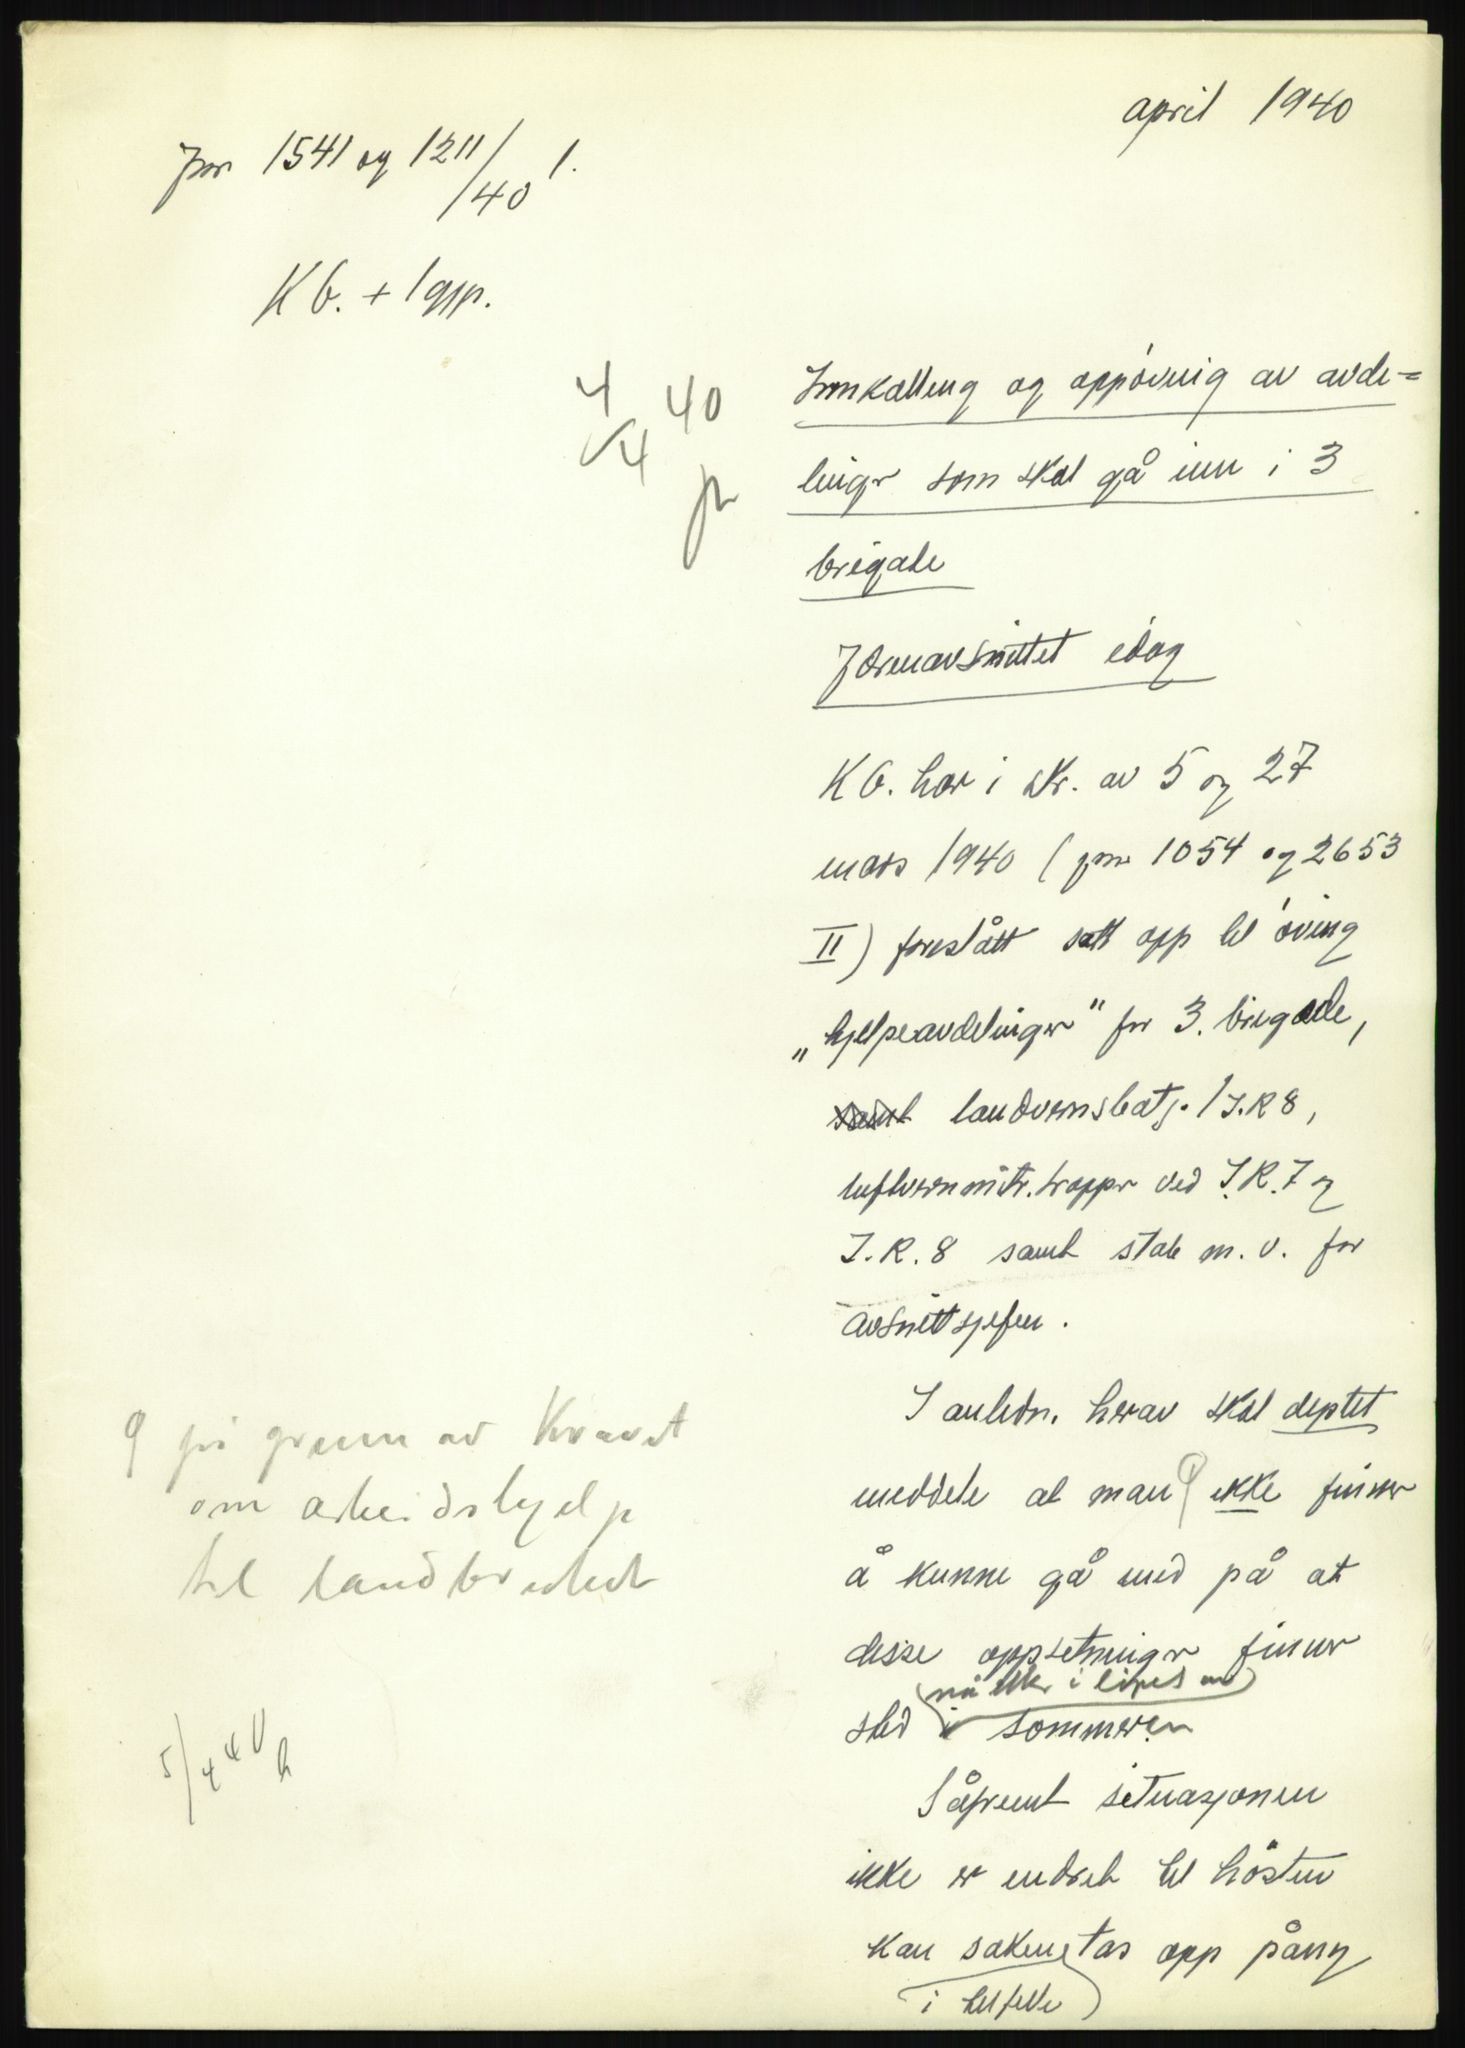 april 1940
Jnr 1541 og 1211/40 1.
KG. + 1 gjp.
4/4 40
Innkalling og oppöving av avde=
linger som skal gå inn i 3
brigade
Jærenavsnittet idag
KG. har i skr. av 5 og 27
mars 1940 (jnr 1054 og 2653
II) foreslått satt opp til öving
„hjelpeavdelinger" for 3. brigade,
samt landvernsbatj. / I.R 8,
luftvernmitr. tropper ved I.R. 7 og
I.R. 8 samt stab m.v. for
avsnittsjefen.
I anledn. herav skal deptet
meddele at man ikke finner
på grunn av kravet
om arbeidshjelp
til landbruket
å kunne gå med på at
disse oppsetninger finner
nu eller i löpet av
sted i sommeren
5/4 40
Såfremt situasjonen
ikke er endret til hösten
kan saken tas opp påny
i tilfelle